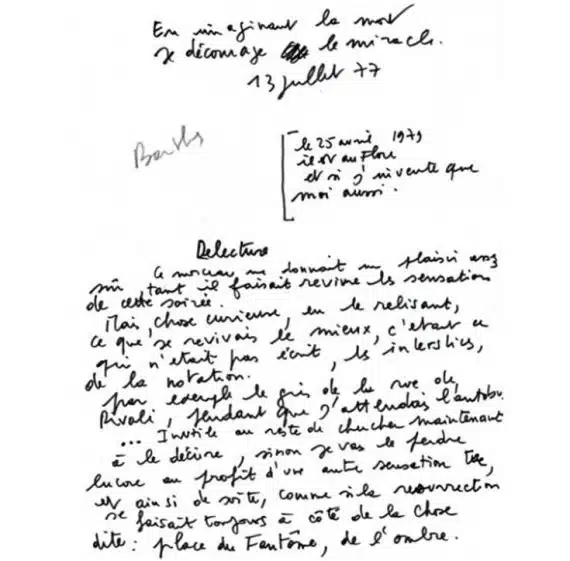 En imaginant la mort
je décourage le miracle.
13 juillet 77
Barthes
le 25 avril 1979
il est au Flore
et si j'invente que
moi aussi.
Relecture
Ce morceau me donnait un plaisir assez
sûr, tant il faisait revivre les sensations
de cette soirée.
Mais, chose curieuse, en le relisant,
ce que je revivais le mieux, c'était ce
qui n'était pas écrit, les interstices,
de la notation.
par exemple le gris de la rue de,
Rivoli, pendant que j'attendais l'autobus
... Inutile au reste de chercher maintenant
à le décrire, sinon je vais le perdre
encore au profit d'une autre sensation tue,
et ainsi de suite, comme si la résurrection
se faisait toujours à côté de la chose
dite : place du Fantôme, de l'ombre.